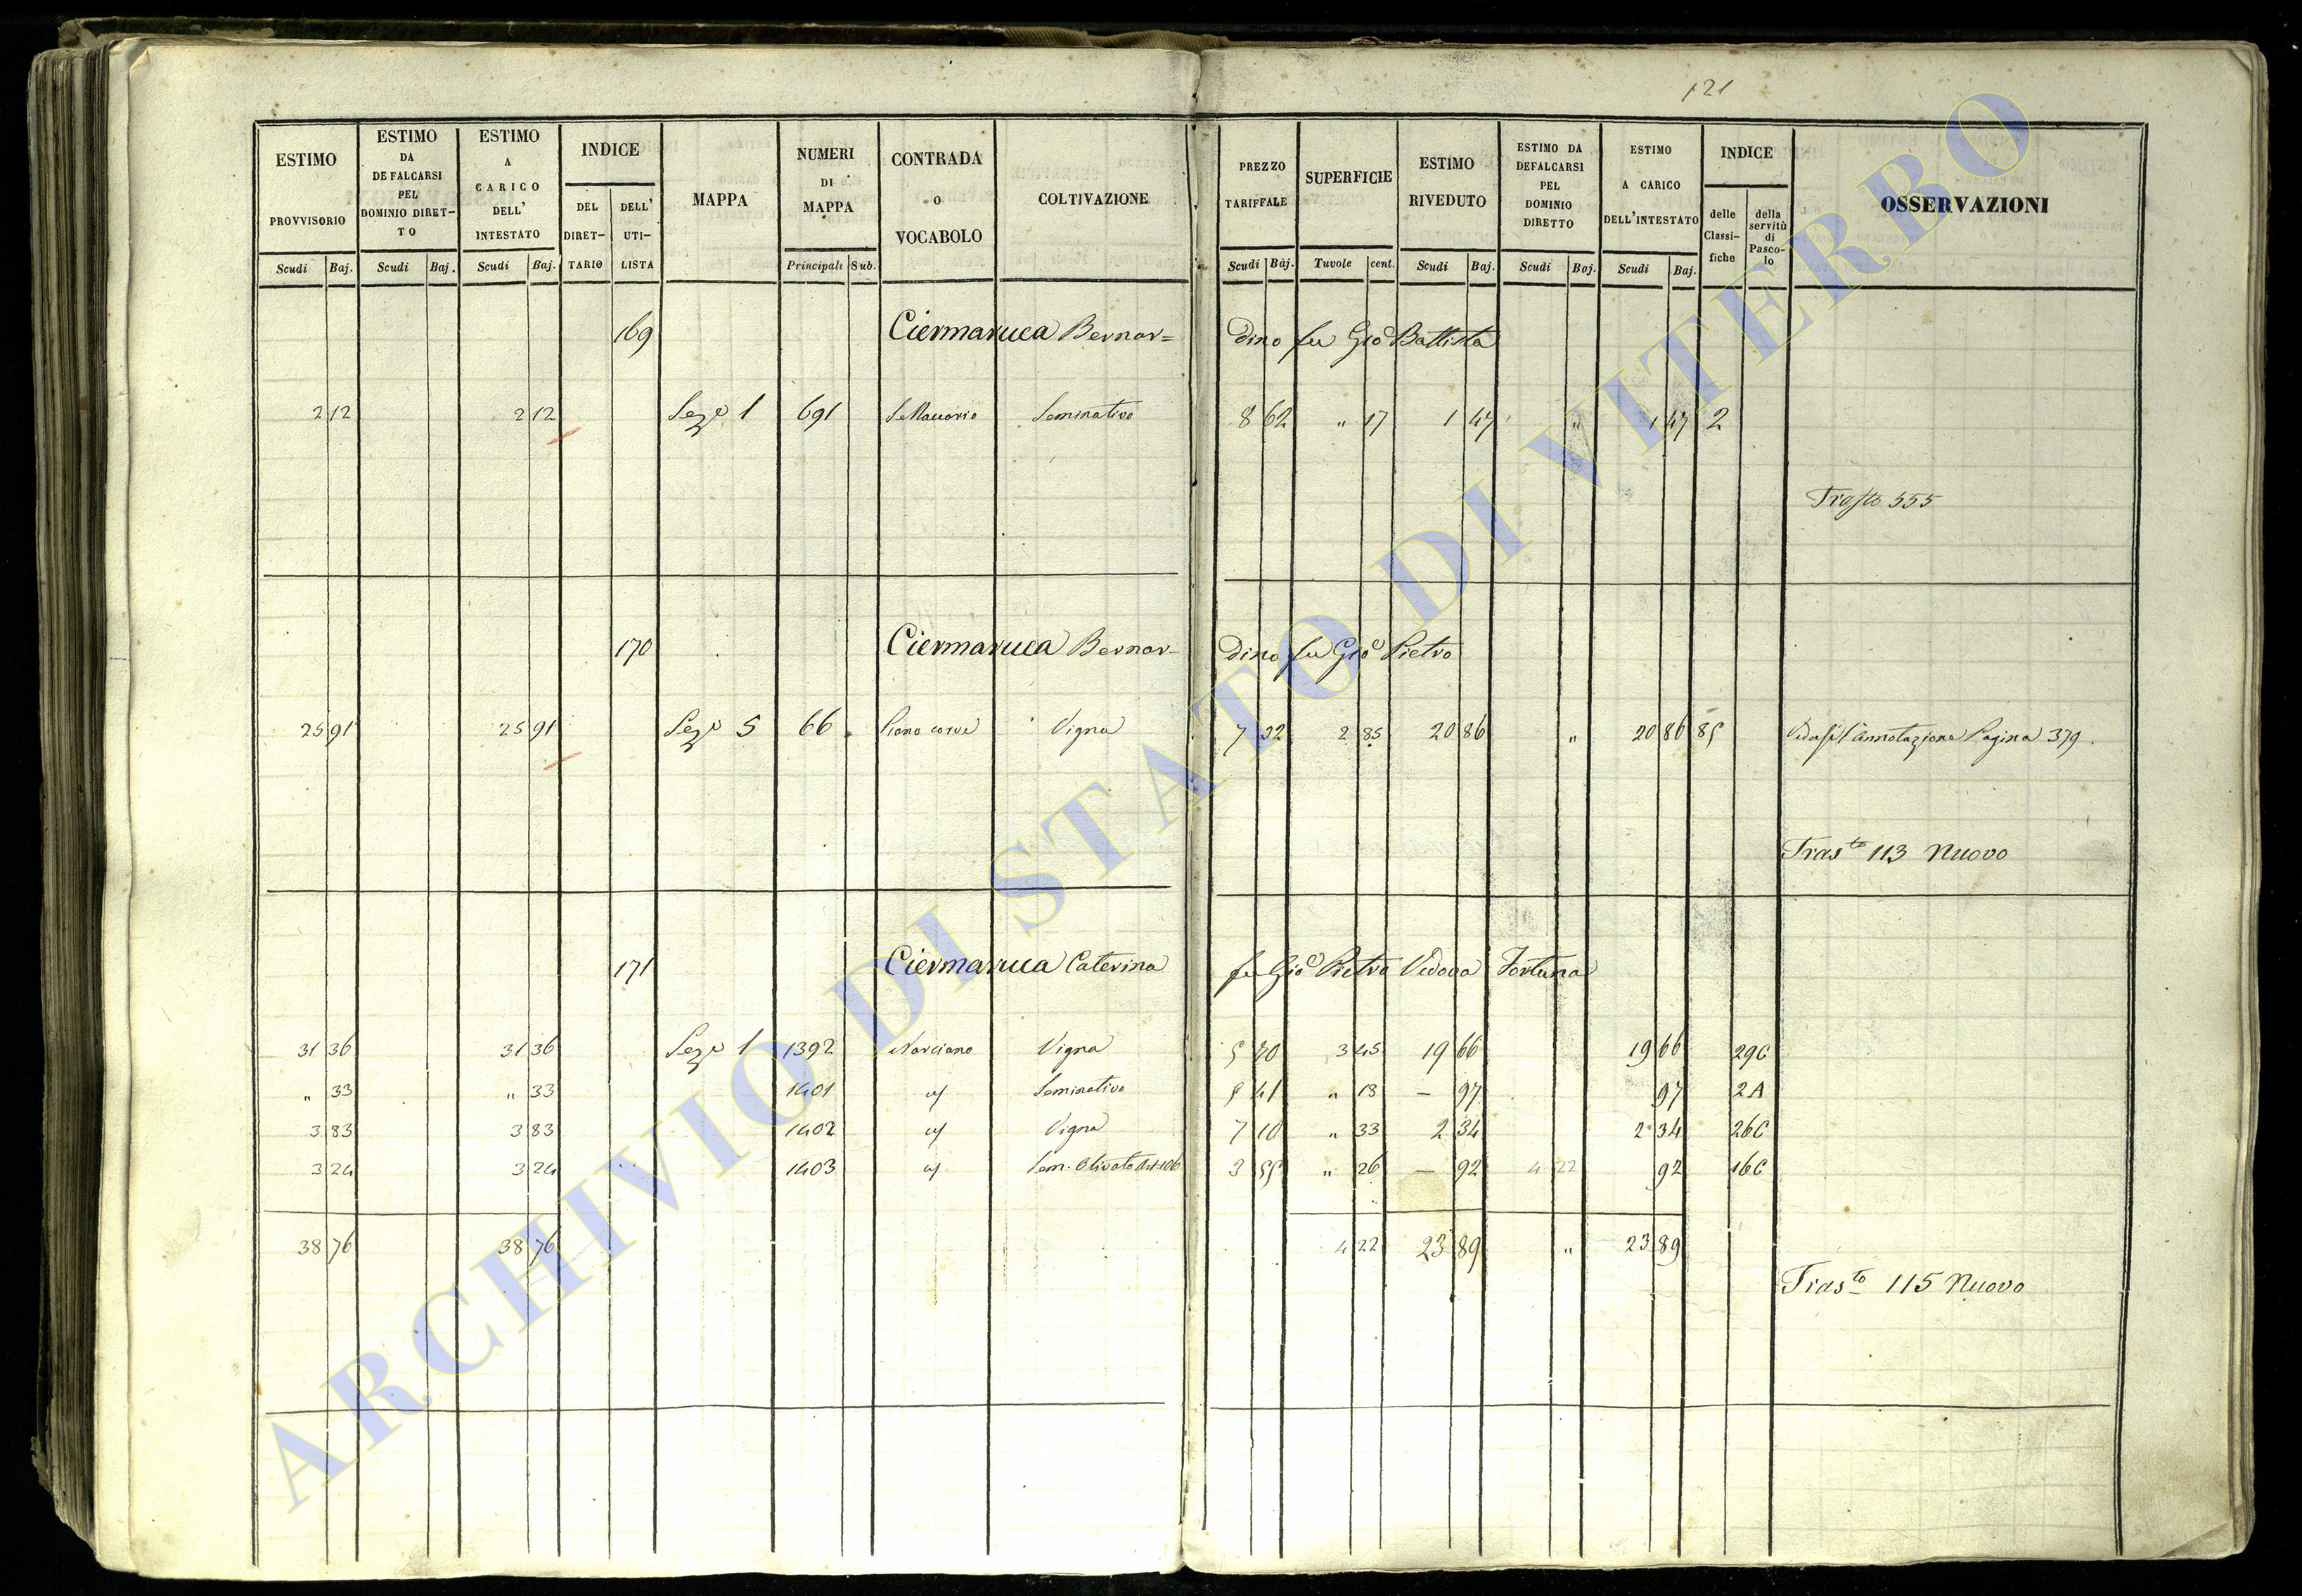 121
ESTIMO PROVVISORIO Scudi Baj.
ESTIMO DA DEFALCARSI PEL DOMINIO DIRET-TO Scudi Baj.
ESTIMO A CARICO DELL' INTESTATO Scudi Baj.
INDICE DEL DIRET-TARIO DELL' UTI-LISTA
MAPPA
NUMERI DI MAPPA Principali Sub.
CONTRADA O VOCABOLO
COLTIVAZIONE
PREZZO TARIFFALE Scudi Baj.
SUPERFICIE Tavole cent.
ESTIMO RIVEDUTO Scudi Baj.
ESTIMO DA DEFALCARSI PEL DOMINIO DIRETTO Scudi Baj.
ESTIMO A CARICO DELL'INTESTATO Scudi Baj.
INDICE delle Classi-fiche della servitù di Pasco-lo
OSSERVAZIONI
169 Ciermaruca Bernar= dino fu Gio Battista
2 12 2 12 Sez.e 1 691 S. Macario Seminativo 8 62 " 17 1 47 " 1 47 2
Trasto 555
170 Ciermaruca Bernar- dino fu Gio Pietro
25 91 25 91 Sez.e 5 66 Piano Vigna 7 32 2 85 20 86 " 20 86 Vedasi l'Annotazione Pagina 379.
Trasto 113 Nuovo
171 Ciermaruca Caterina fu Gio Pietro Vedova Fortuna
31 36 31 36 Sez.e 1 1392 Marciano Vigna 5 70 3 45 19 66 19 66 29C
" 33 " 33 1401 Seminativo 41 " 18 — 97 97 2A
3 83 3 83 1402 Vigna 7 10 " 33 2 34 2 34 26C
3 24 3 24 1403 Sem. Olivato 3 55 " 26 — 92 4 22 92 16C
38 76 38 76 4 22 23 89 " 23 89
Trasto 115 Nuovo
ARCHIVIO DI STATO DI VITERBO